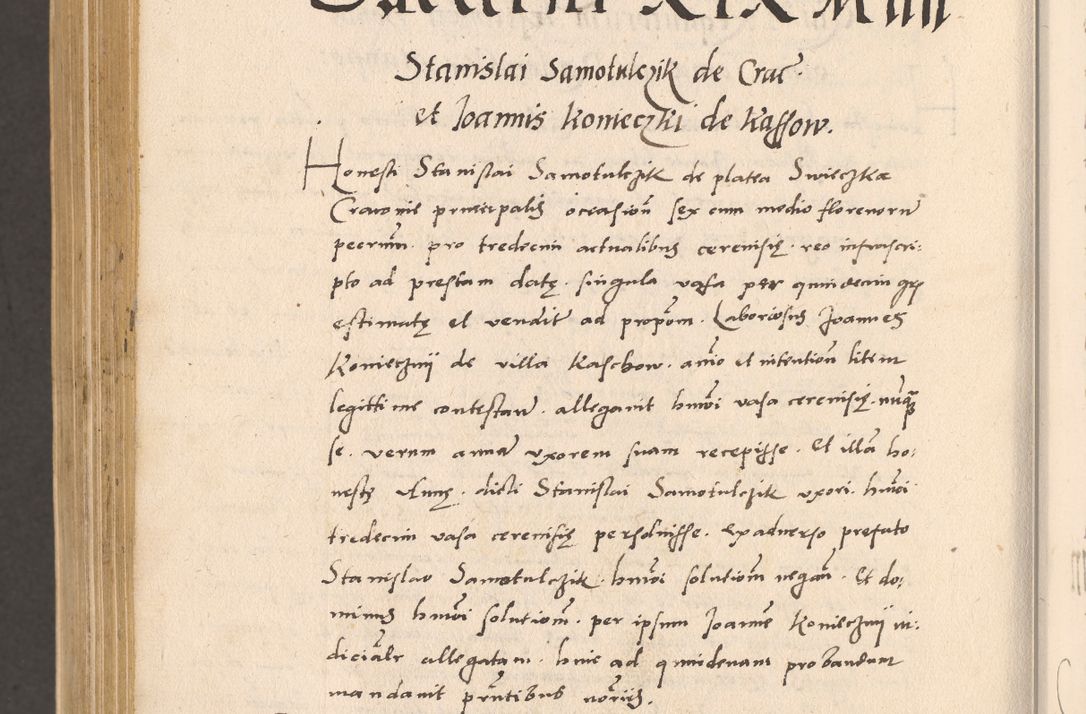 Stanislai Samotulczik de Crac.
et Joannis Konieczki de Kassow.
Honesti Stanislai Samotulczik de platea Swieczka
Cracovie principalis occasiõn sex cum medio florenorũ
pro tredecim actualibus cerevisię. reo infrascri:
pto ad prestam datę. singula vasa per quindecim gr
estimatę et vendit ad propõm. Laboriosus Joannes
Koniecznij de villa Kaschow. anĩo et intentiõn litem
legittime contestanď. allegavit hmõi vasa cerevisię. nũq̃
se. verum annã uxorem suam recepisse. Et illã ho:
nestę Annę. dicti Stanislai Samotulczik uxori. hmõi
tredecim vasa cerevisię persolvisse. Ex adverso prefato
Stanislao Samotulczik. hmõi solutiõm negañ. Et do:
minus hmõi solutiõm. per ipsum Joannẽ Koniecznij iu:
diciãlr allegatam. huic ad quindenam probandum
mandavit prñtibus